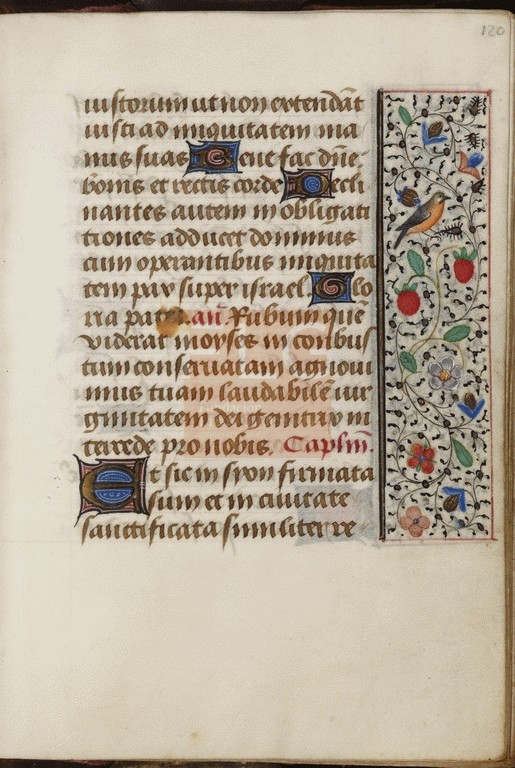 120
iustorum ut non extendāt
iusti ad iniquitatem ma
nus suas Bene fac dn̄e
bonis et rectis corde Decli
nantes autem in obligati
tiones adducet dominus
cum operantibus iniquita
tem pax super israel Glo
ria patri. an̄ Rubum quē
viderat moyses in conbus
tum conseruatam agnoui
mus tuam laudabilē uir
ginitatem dei genitrix in
tercede pro nobis. Caplm̄.
Et sic in syon firmata
sum et in ciuitate
sanctificata similiter re